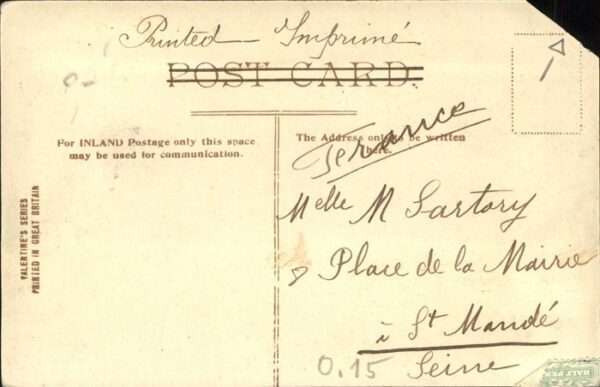 Printed - Imprimé
POST CARD
For INLAND Postage only this space
may be used for communication.
The Address only to be written
here.
France
Melle M Sartory
8 Place de la Mairie
à St Mandé
Seine
0.15
VALENTINE'S SERIES
PRINTED IN GREAT BRITAIN
HALF PEN